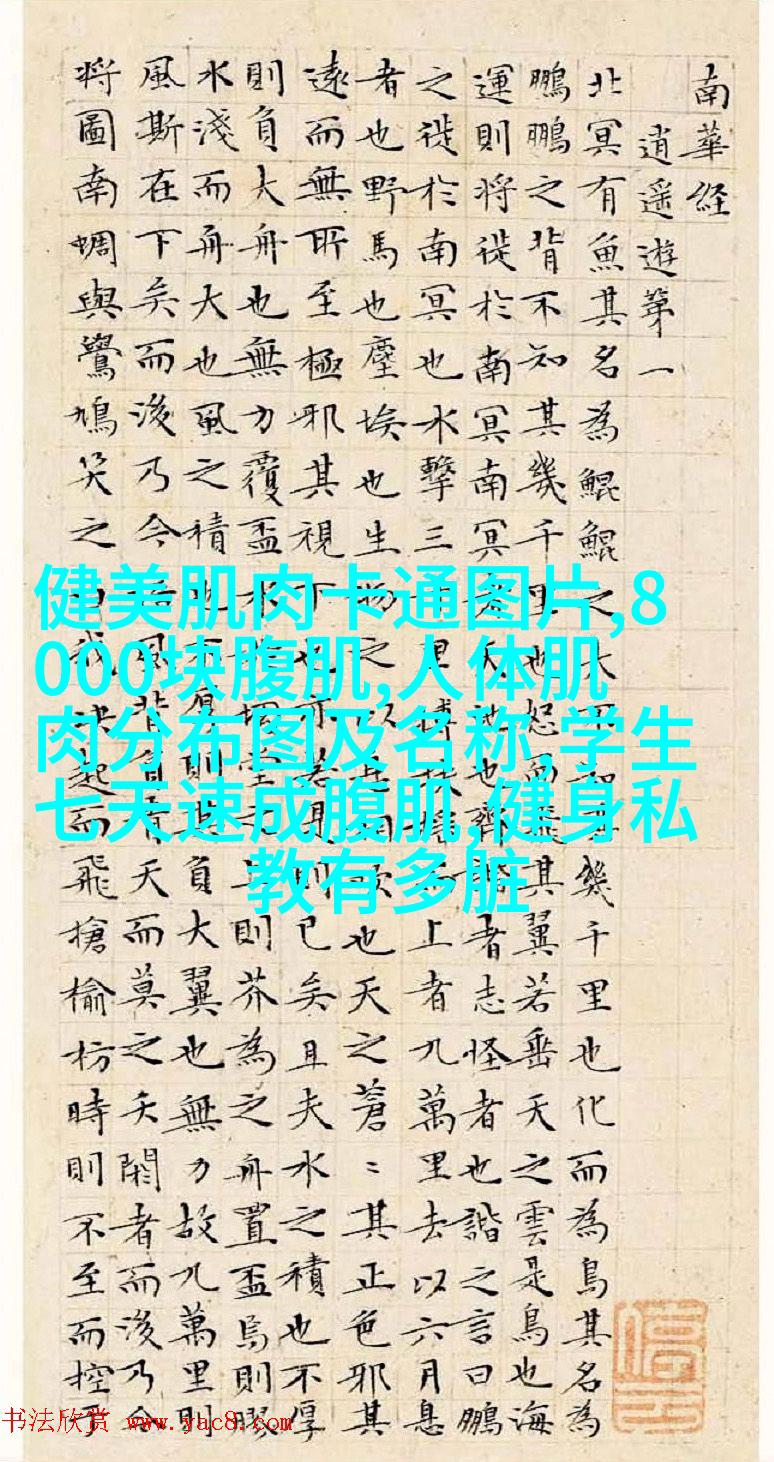 南華経
逍遥遊第一
北冥有魚其名為鯤鯤之大不知其幾千里也化而為鳥其名為
鵬鵬之背不知其幾千里也怒而飛其翼若垂天之雲是鳥也海
運則將徙於南冥南冥者天池也齊諧者志怪者也諧之言曰鵬
之徙於南冥也水擊三千里摶扶揺而上者九萬里去以六月息
者也野馬也塵埃也生物之以息相吹也天之蒼〻其正色邪其
遠而無所至極邪其視下也亦若是則已矣且夫水之積也不厚
則負大舟也無力覆盃水於坳堂之上則芥為之舟置盃焉則膠
水淺而舟大也風之積也不厚則其負大翼也無力故九萬里則
風斯在下矣而後乃今培風背負青天而莫之夭閼者而後乃今
將圖南蜩與鷽鳩笑之曰我決起而飛搶榆枋時則不至而控於
健美肌肉卡通图片,8
000块腹肌,人体肌
肉分布图及名称,学生
七天速成腹肌,健身私
教有多脏
书法欣赏 www.yac8.com